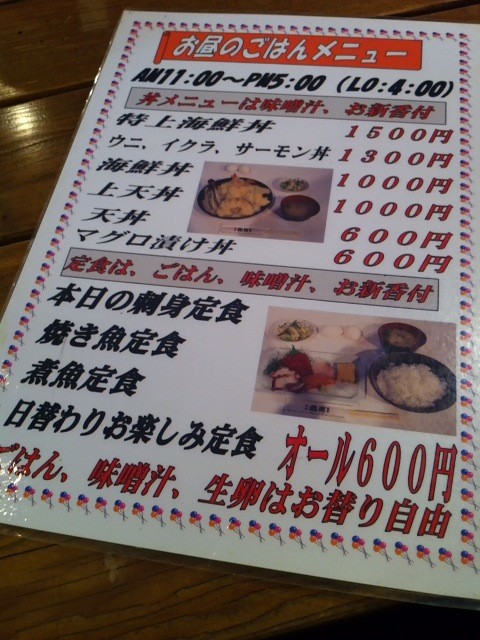 お昼のごはんメニュー
AM11:00～PM5:00 (LO:4:00)
丼メニューは味噌汁、お新香付
特上海鮮丼 1500円
ウニ、イクラ、サーモン丼 1300円
海鮮丼 1000円
上天丼 1000円
天丼 600円
マグロ漬け丼 600円
定食は、ごはん、味噌汁、お新香付
本日の刺身定食
焼き魚定食
煮魚定食
日替わりお楽しみ定食
オール600円
ごはん、味噌汁、生卵はお替り自由